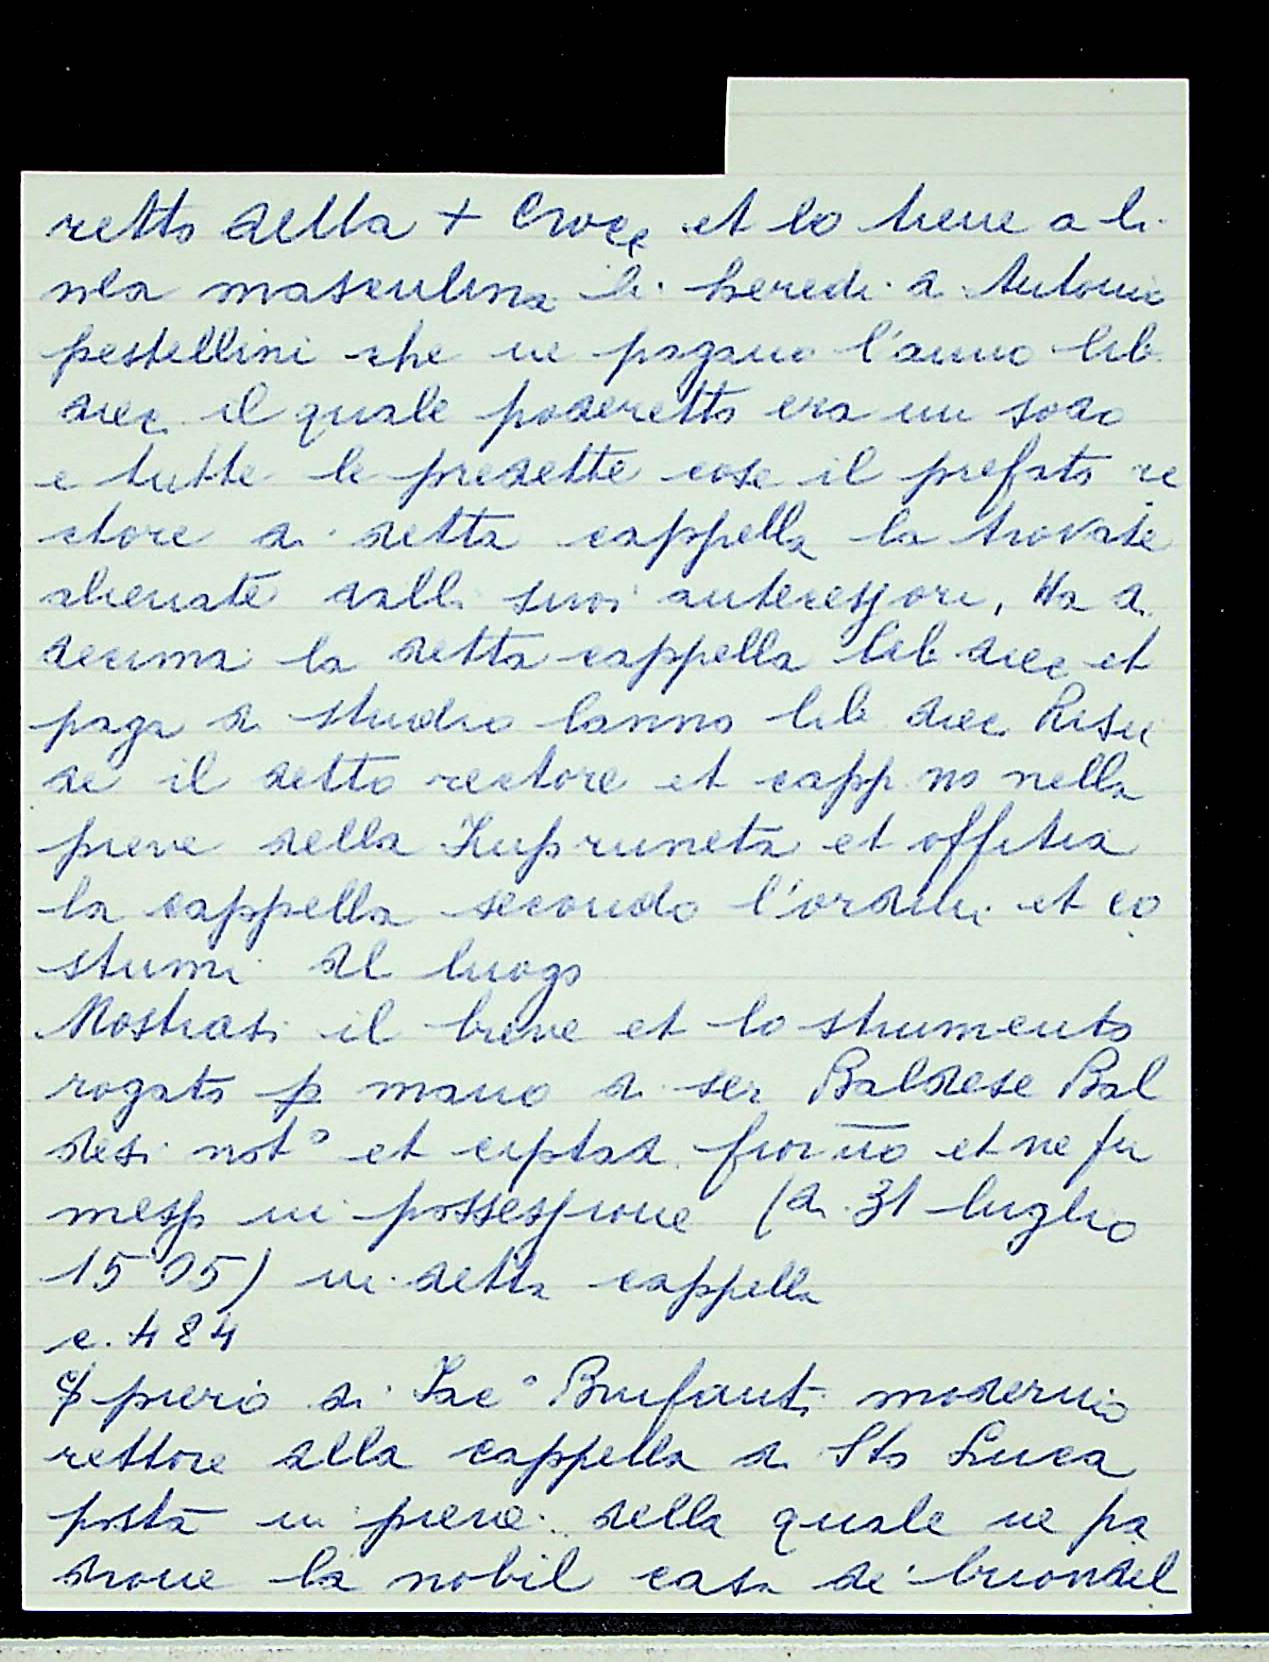 retto della + Croce et lo tiene a li
nea masculina li heredi d Antonio
pestellini che ne pagano l'anno lib
diec il quale poderetto era un sodo
e tutte le predette cose il prefato re
ctore di detta cappella la trovate
alienate dalli suoi antecessori, Ha di
decima la detta cappella lib diec et
paga di studio lanno lib diec Risie
de il detto rectore et capp no nella
pieve della Impruneta et offitia
la cappella secondo l'ordini et co
stumi del luogo
Mostrasi il breve et lo strumento
rogato p mano di ser Baldese Bal
desi not° et fior no et ne fu
messo in possessione (di 31 luglio
1505) in detta cappella
c. 484
piero di Iac° Bonfanti moderno
rettore della cappella di Sto Luca
posta in pieve della quale ne pa
drone la nobil casa de buondel